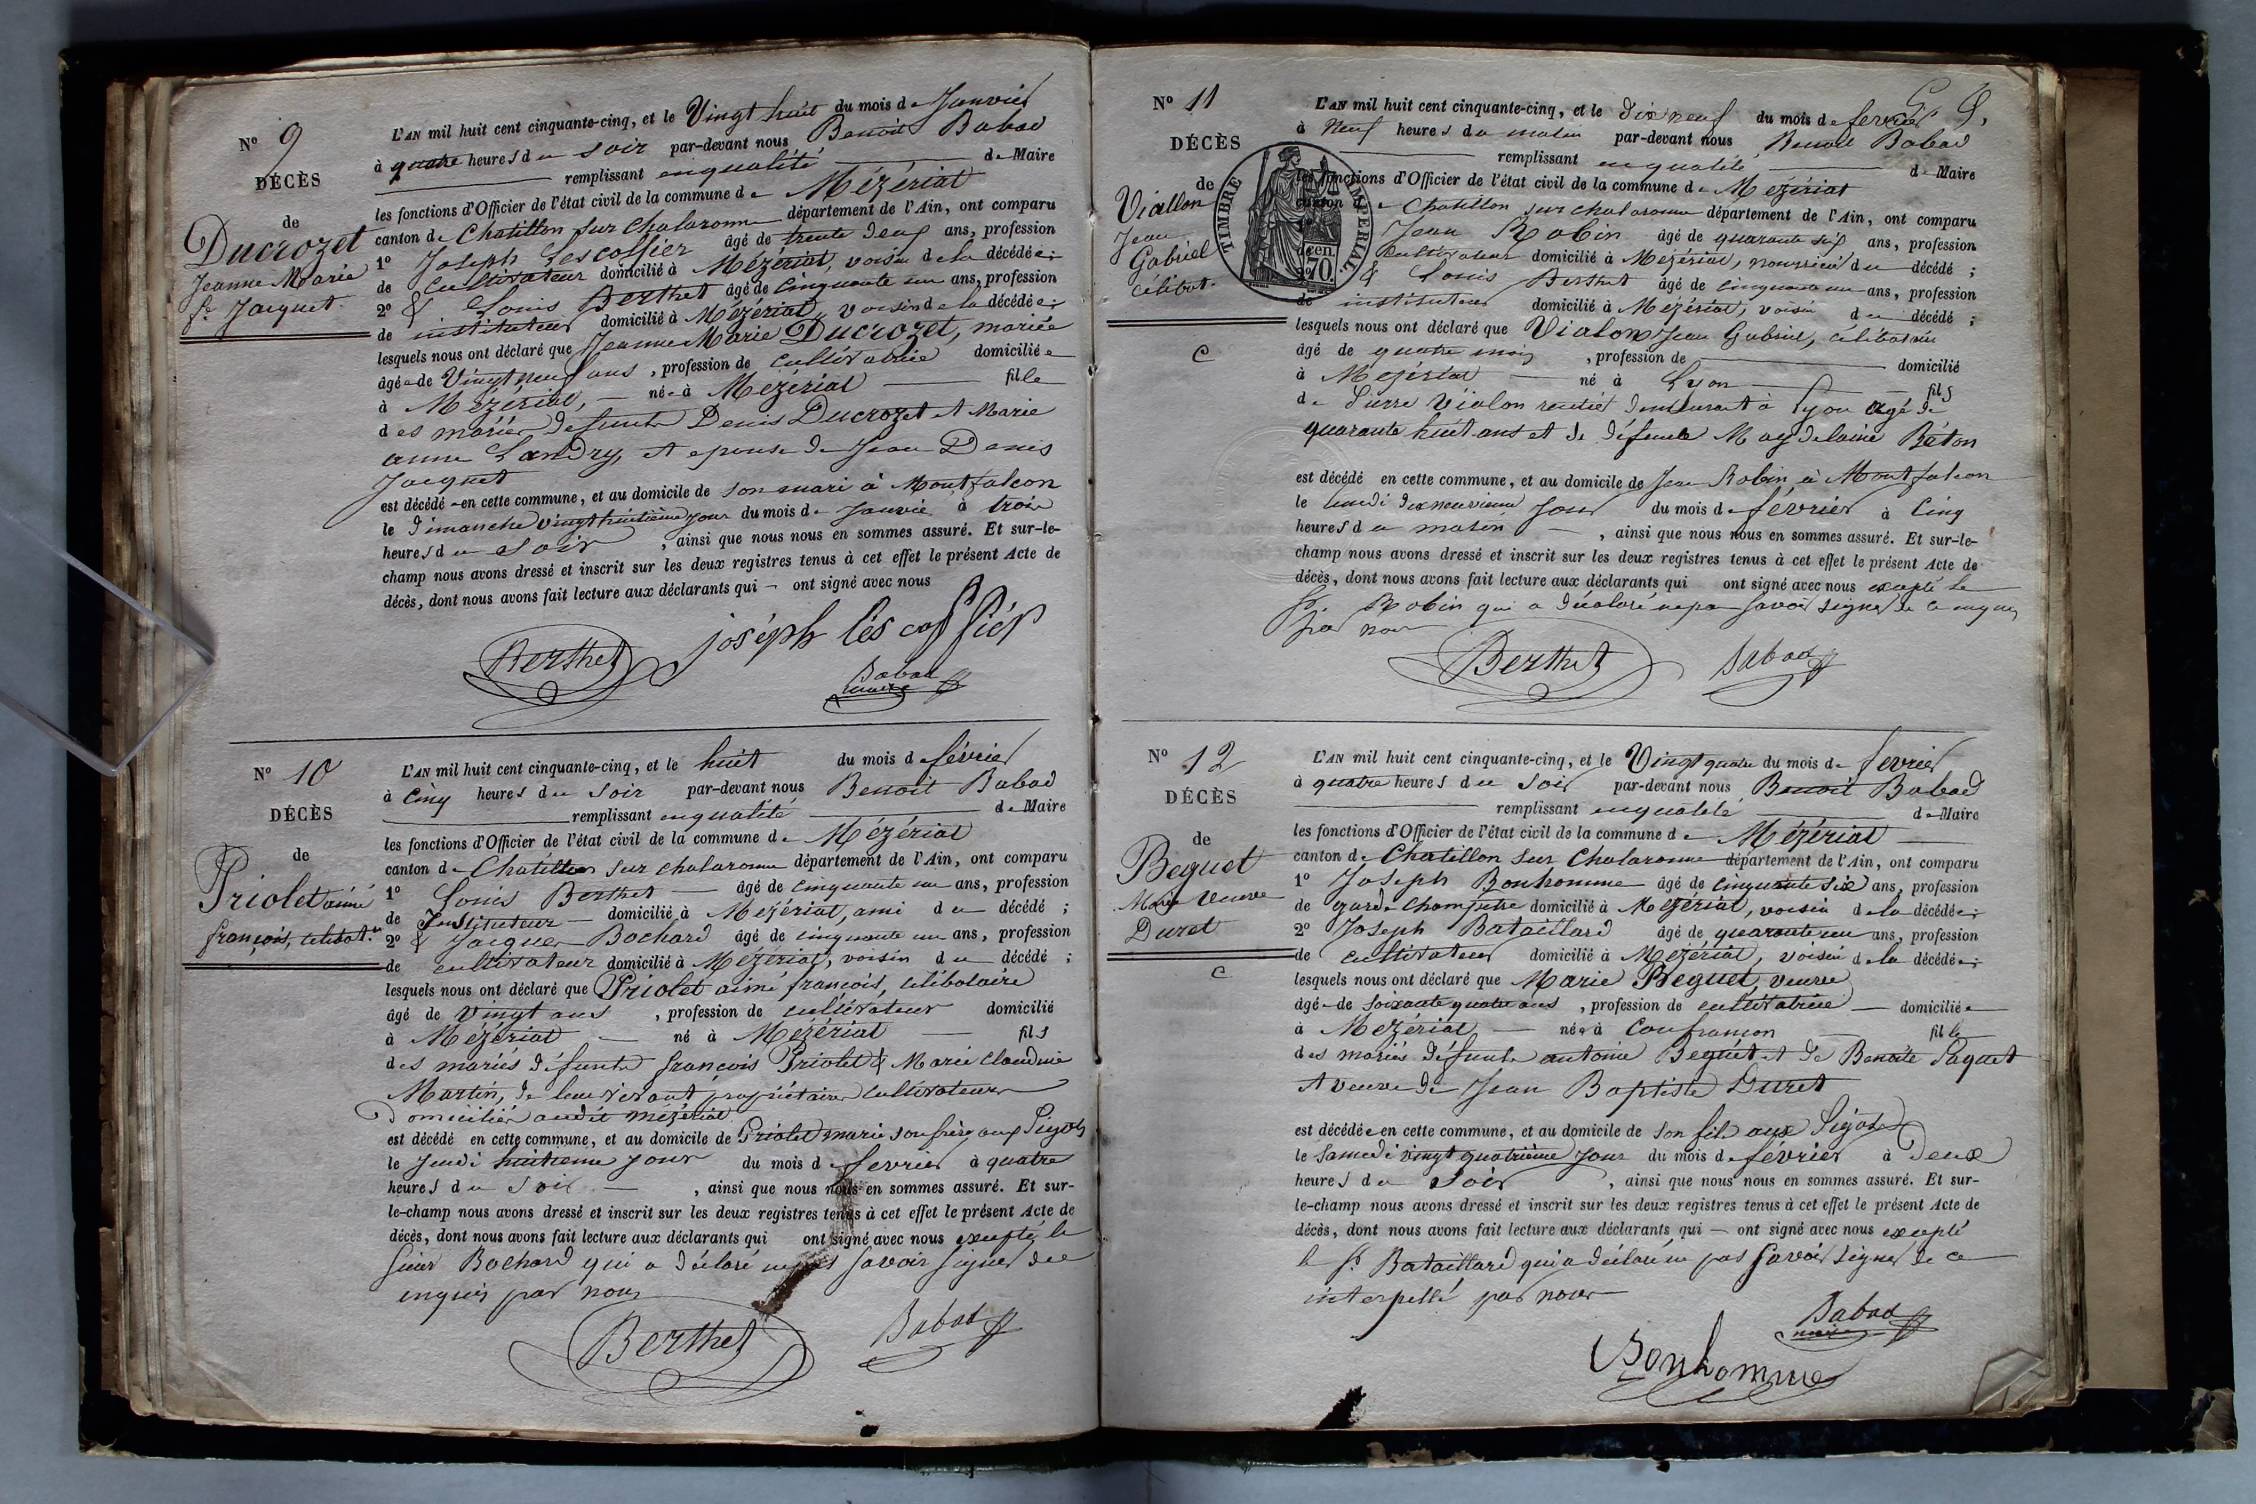 N° 9
DÉCÈS
de
Ducrozet
Jeanne Marie
fe Jacquet.
L'AN mil huit cent cinquante-cinq, et le Vingt huit du mois de Janvier
à quatre heures du soir par-devant nous Benoit Babad
remplissant en qualité de Maire
les fonctions d'Officier de l'état civil de la commune de Mézériat
canton de Chatillon sur chalaronne département de l'Ain, ont comparu
1° Joseph Lescoffier âgé de trente deux ans, profession
de cultivateur domicilié à Mézériat, voisin de la décédée;
2° & Louis Berthet âgé de cinquante un ans, profession
de instituteur domicilié à Mézériat, voisin de la décédée;
lesquels nous ont déclaré que Jeanne Marie Ducrozet, mariée
âgée de Vingt neuf ans, profession de cultivatrice domiciliée
à Mézériat, née à Mézériat fille
des mariés defunts Denis Ducrozet et Marie
anne Landry, et epouse de Jean Denis
Jacquet
est décédée en cette commune, et au domicile de son mari à Montfalcon
le dimanche vingt huitième jour du mois de Janvier à trois
heures du soir, ainsi que nous nous en sommes assuré. Et sur-le-
champ nous avons dressé et inscrit sur les deux registres tenus à cet effet le présent Acte de
décès, dont nous avons fait lecture aux déclarants qui ont signé avec nous
joséph léscoffiér
Berthet
Babad
maire
N° 10
DÉCÈS
de
Priolet aimé
françois, celibat.re
L'AN mil huit cent cinquante-cinq, et le huit du mois de février
à cinq heures du soir par-devant nous Benoit Babad
remplissant en qualité de Maire
les fonctions d'Officier de l'état civil de la commune de Mézériat
canton de Chatillon sur chalaronne département de l'Ain, ont comparu
1° Louis Berthet âgé de cinquante un ans, profession
de Instituteur domicilié à Mézériat, ami du décédé;
2° & Jacques Bochard âgé de cinquante un ans, profession
de cultivateur domicilié à Mézériat, voisin du décédé;
lesquels nous ont déclaré que Priolet aimé françois, célibataire
âgé de vingt ans, profession de cultivateur domicilié
à Mézériat né à Mézériat fils
des mariés défunts françois Priolet & Marie Claudine
Martin, de leur vivant propriétaires cultivateurs
domiciliés audit mézériat
est décédé en cette commune, et au domicile de Priolet marie son frère aux Pigots
le Jeudi huitieme jour du mois de fevrier à quatre
heures du soir, ainsi que nous nous en sommes assuré. Et sur-
le-champ nous avons dressé et inscrit sur les deux registres tenus à cet effet le présent Acte de
décès, dont nous avons fait lecture aux déclarants qui ont signé avec nous excepté le
sieur Bochard qui a déclaré ne pas savoir signer de ce
enquis par nous
Berthet
Babad
N° 11
DÉCÈS
de
Viallon
Jean
Gabriel
célibat.
TIMBRE IMPERIAL.
cen.
70.
c
L'AN mil huit cent cinquante-cinq, et le dix neuf du mois de fevrier
à Neuf heures du matin par-devant nous Benoit Babad
remplissant en qualité de Maire
les fonctions d'Officier de l'état civil de la commune de Mézériat
canton de Chatillon sur chalaronne département de l'Ain, ont comparu
Jean Robin âgé de quarante six ans, profession
cultivateur domicilié à Mézériat, nourricier du décédé;
& Louis Berthet âgé de cinquante un ans, profession
de instituteur domicilié à Mézériat, voisin du décédé;
lesquels nous ont déclaré que Vialon Jean Gabriel, célibataire
âgé de quatre mois, profession de domicilié
à Mézériat né à Lyon fils
de Pierre Vialon rentier demeurant à Lyon agé de
quarante huit ans et de défunte Magdelaine Baton
est décédé en cette commune, et au domicile de Jean Robin à Montfalcon
le lundi dix neuvieme Jour du mois de février à Cinq
heures du matin, ainsi que nous nous en sommes assuré. Et sur-le-
champ nous avons dressé et inscrit sur les deux registres tenus à cet effet le présent Acte de
décès, dont nous avons fait lecture aux déclarants qui ont signé avec nous excepté le
Sr. Robin qui a déclaré ne pas savoir signer de ce enquis
par nous
Berthet
Babad
N° 12
DÉCÈS
de
Beguet
Marie Veuve
Duret
c
L'AN mil huit cent cinquante-cinq, et le Vingt quatre du mois de fevrier
à quatre heures du soir par-devant nous Benoit Babad
remplissant en qualité de Maire
les fonctions d'Officier de l'état civil de la commune de Mézériat
canton de Chatillon sur Chalaronne département de l'Ain, ont comparu
1° Joseph Bonhomme âgé de cinquante six ans, profession
de garde champêtre domicilié à Mézériat, voisin de la décédée;
2° Joseph Bataillard âgé de quarante un ans, profession
de cultivateur domicilié à Mézériat, voisin de la décédée;
lesquels nous ont déclaré que Marie Beguet, veuve
âgée de soixante quatre ans, profession de cultivatrice domiciliée
à Mézériat née à Confrançon fille
des mariés défunts antoine Beguet et de Benoite Paquet
et veuve de Jean Baptiste Duret
est décédée en cette commune, et au domicile de son fils aux Pigots
le Samedi vingt quatrième Jour du mois de février à Deux
heures du soir, ainsi que nous nous en sommes assuré. Et sur-
le-champ nous avons dressé et inscrit sur les deux registres tenus à cet effet le présent Acte de
décès, dont nous avons fait lecture aux déclarants qui ont signé avec nous excepté
le Sr. Bataillard qui a déclaré ne pas savoir signer de ce
interpellé par nous
Babad
maire
Bonhomme